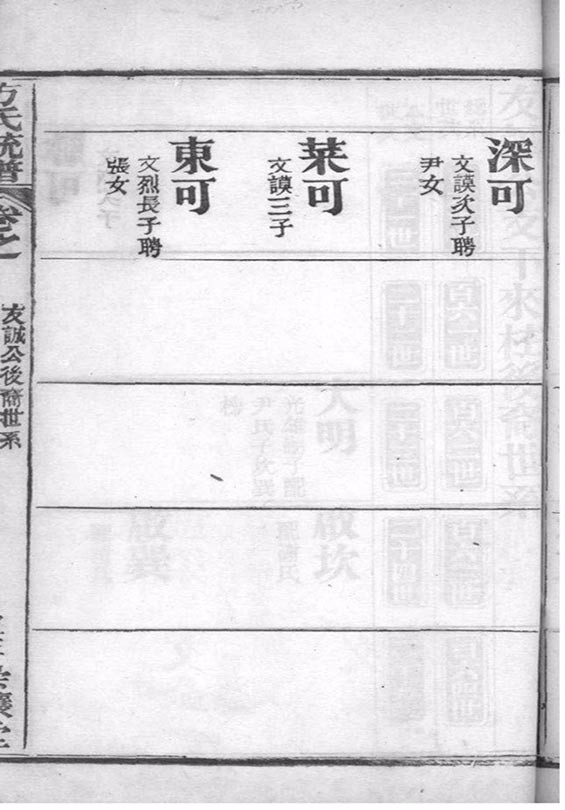 深可
文謨次子聘
尹女
萊可
文謨三子
東可
文烈長子聘
張女
方氏統譜
卷之
友誠公後裔世系